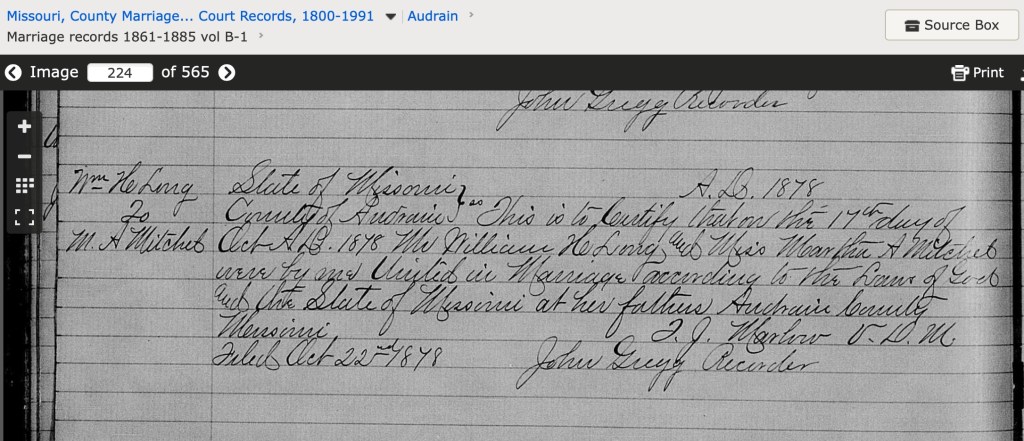 Missouri, County Marriage... Court Records, 1800-1991 Audrain
Marriage records 1861-1885 vol B-1
Source Box
Image 224 of 565
Print
John Gregg Recorder
Wm H Long State of Missouri A.D. 1878
To County of Audrain ss This is to Certify that on the 17th day of
M. A Mitchel Oct A.D. 1878 Mr William H Long and Miss Martha A Mitchel
were by me United in Marriage according to the Laws of God
and the State of Missouri at her fathers Audrain County
Missouri J. J. Marlow V. D. M.
Filed Oct 22nd 1878 John Gregg Recorder